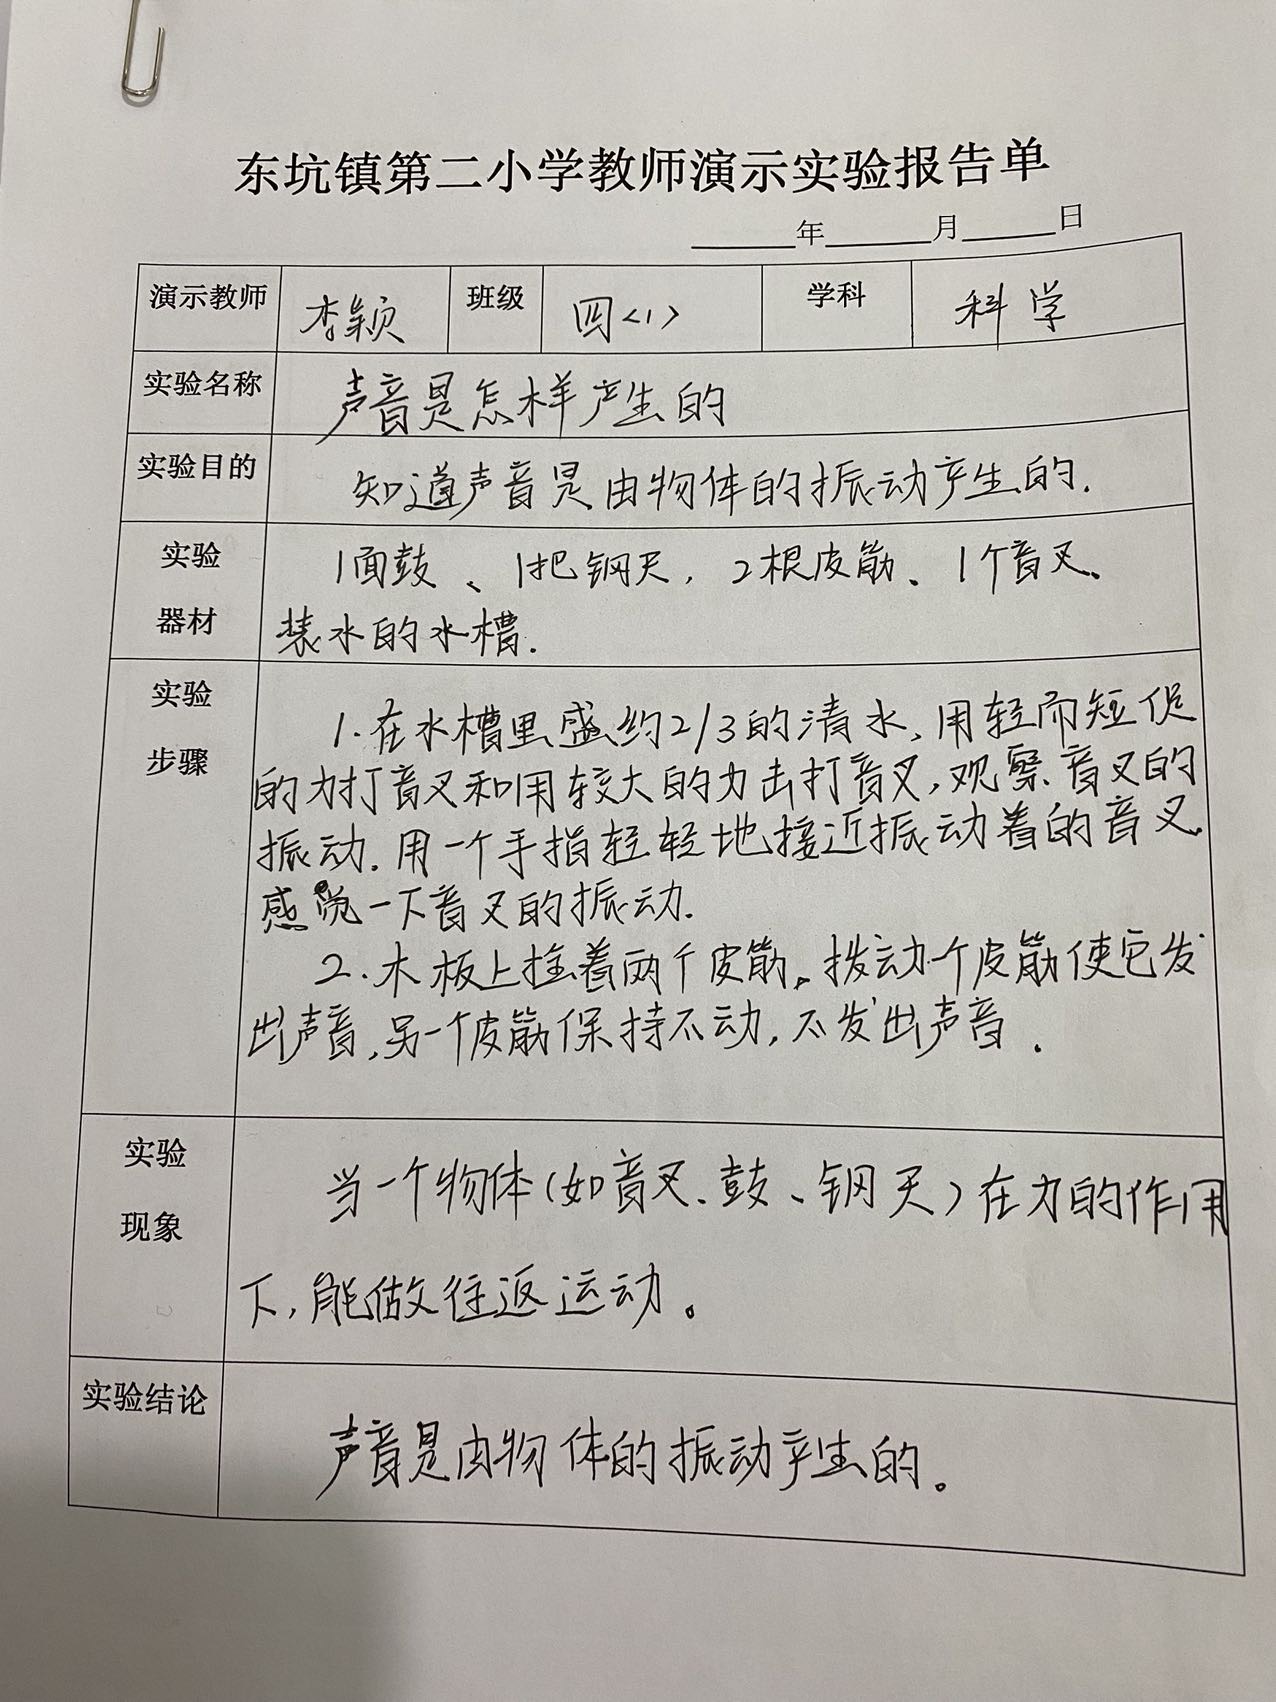 东坑镇第二小学教师演示实验报告单
______年______月______日
演示教师 李颖 班级 四<1> 学科 科学
实验名称 声音是怎样产生的
实验目的 知道声音是由物体的振动产生的.
实验器材 1面鼓、1把钢尺，2根皮筋、1个音叉、
装水的水槽.
实验步骤 1.在水槽里盛约2/3的清水，用轻而短促
的力打音叉和用较大的力击打音叉，观察音叉的
振动.用一个手指轻轻地接近振动着的音叉
感觉一下音叉的振动.
2.木板上拴着两个皮筋。拨动一个皮筋使它发
出声音，另一个皮筋保持不动，不发出声音.
实验现象 当一个物体(如音叉、鼓、钢尺)在力的作用
下，能做往返运动。
实验结论 声音是由物体的振动产生的。